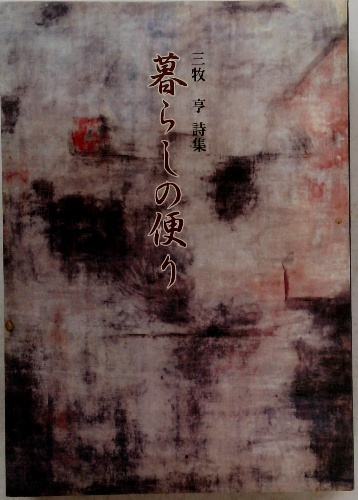 三牧 亨 詩集
暮らしの便り